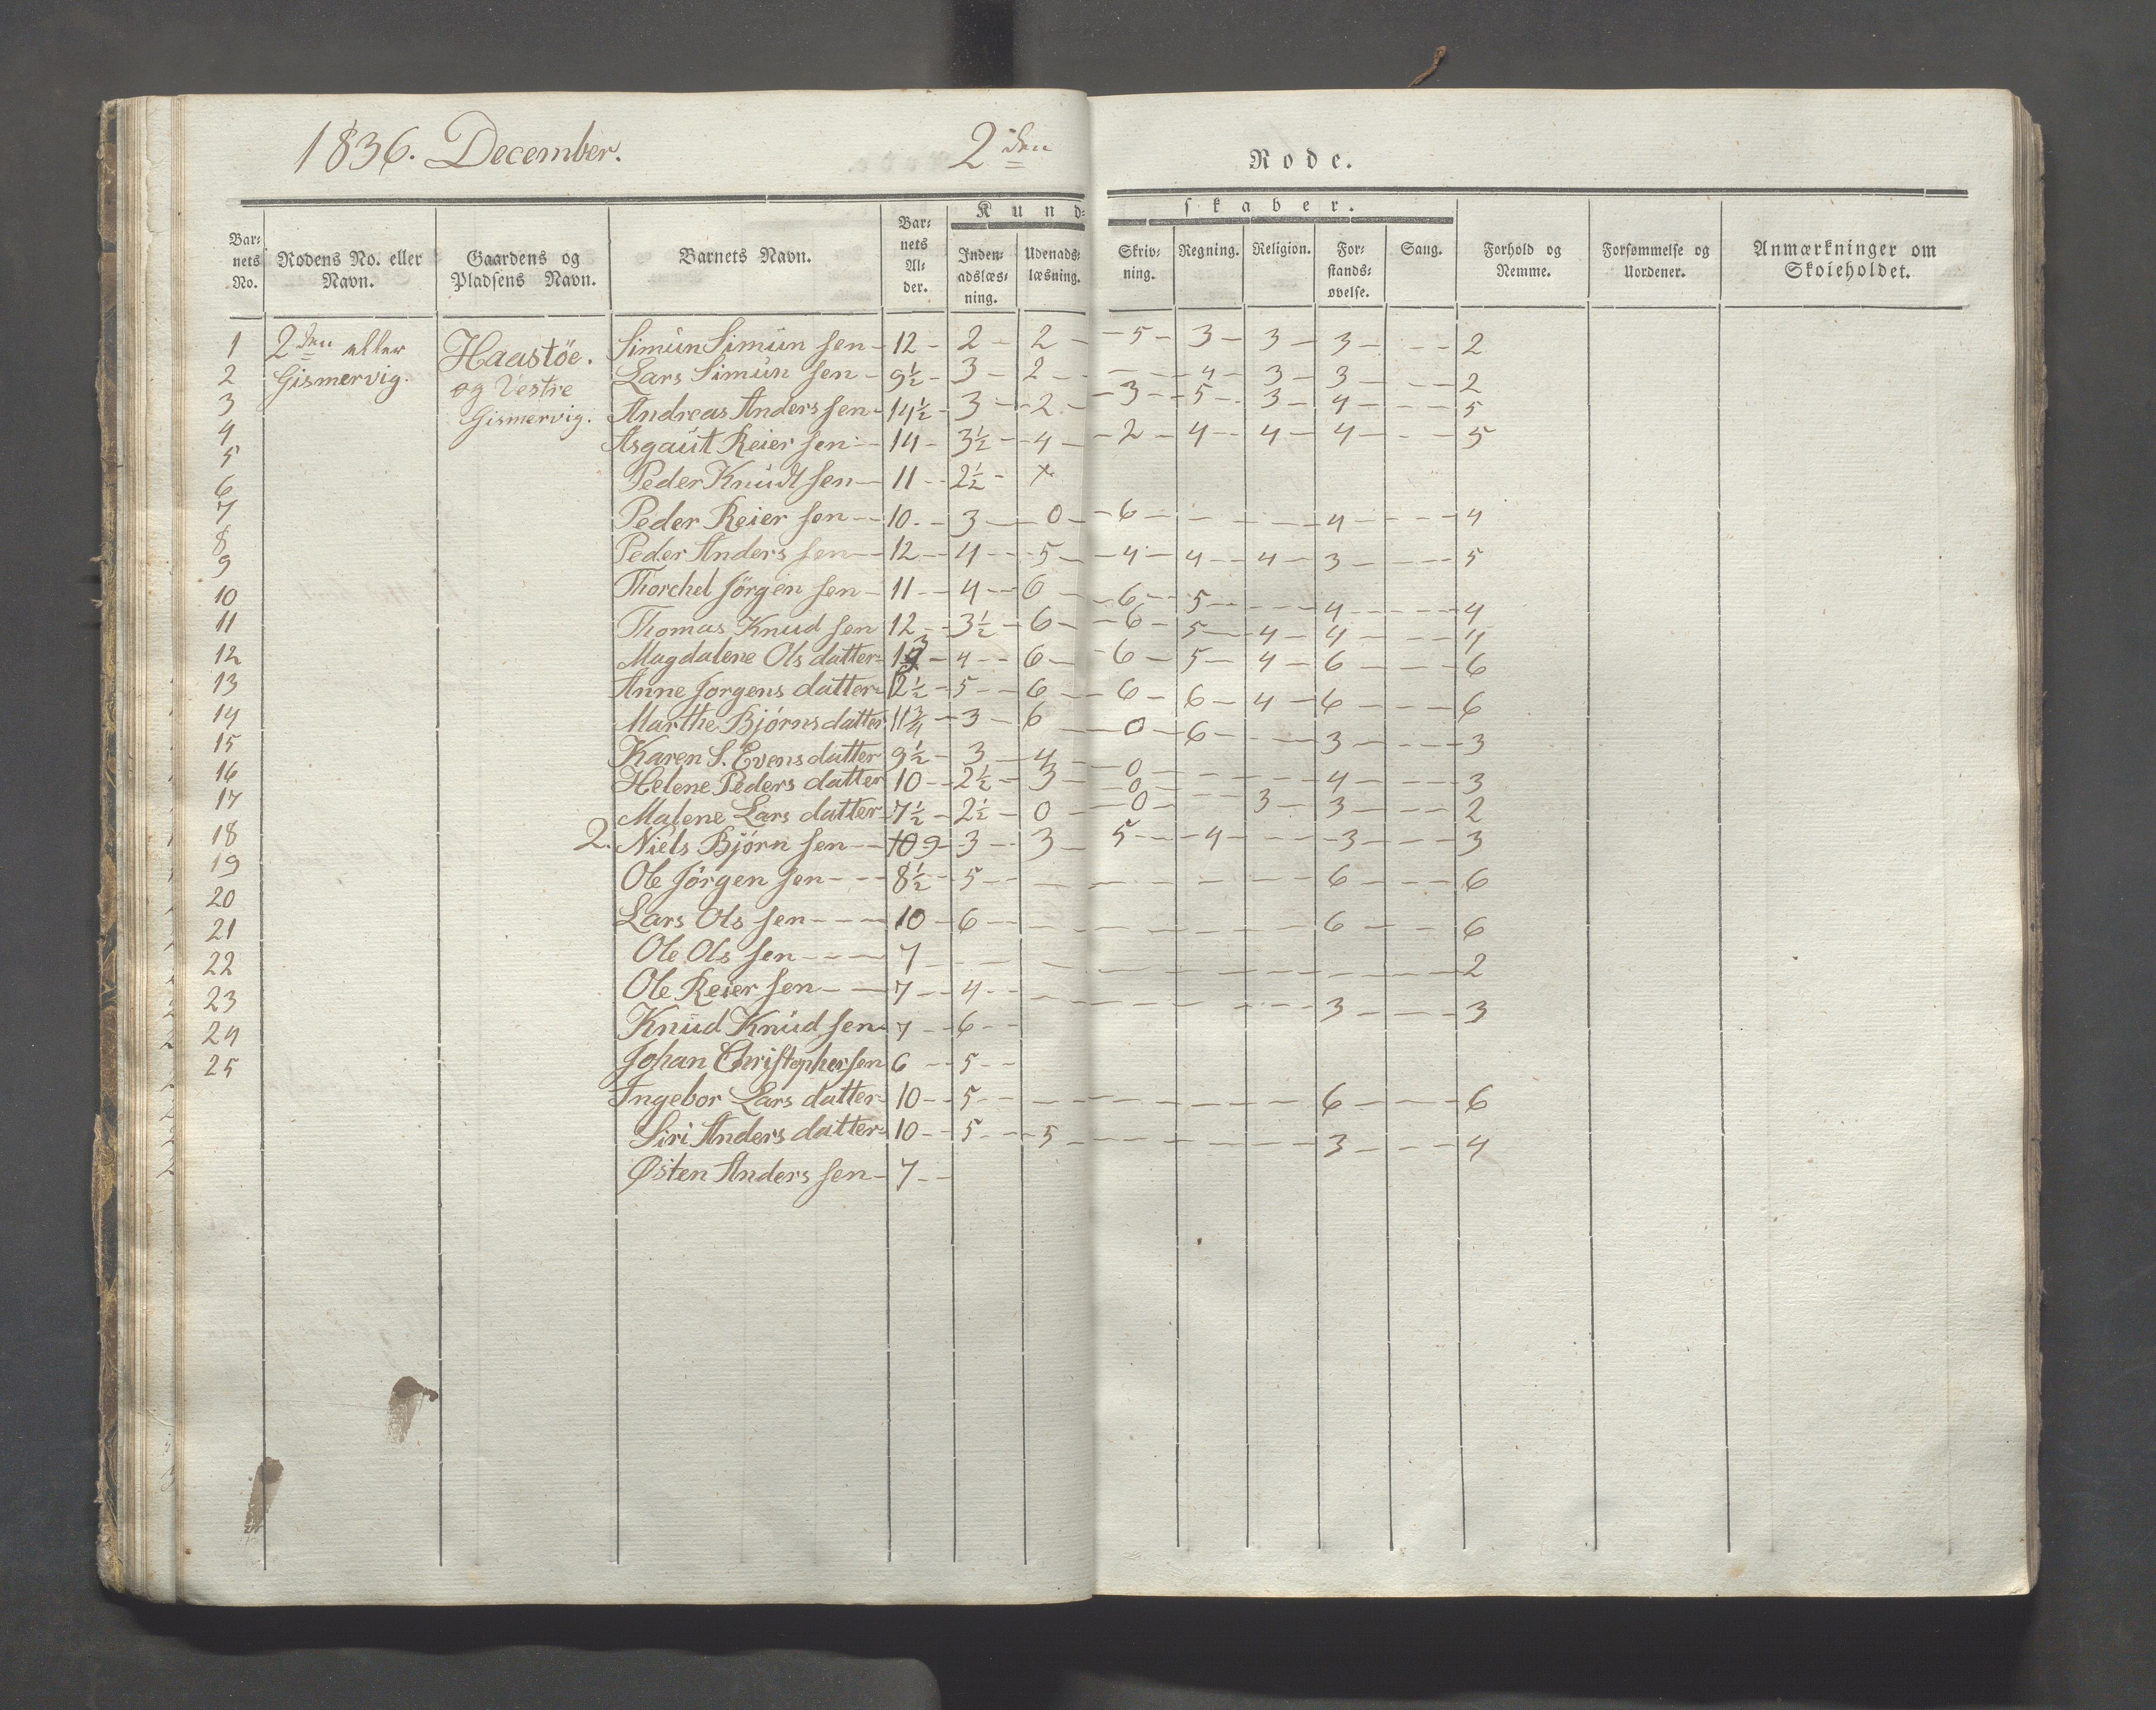 1836. December. 2den Rode.
Kund= skaber.
Bar= nets No. Rodens No. eller Navn. Gaardens og Pladsens Navn. Barnets Navn. Bar= nets Al= der. Inden= adslæs= ning. Udenads= læsning. Skriv= ning. Regning. Religion. For= stands= øvelse. Sang. Forhold og Nemme. Forsømmelse og Uordener. Anmærkninger om Skoleholdet.
1 2den eller Haastöe. Simün Simün sen - 12 - 2 - 2 - - 5 - 3 - 3 - 3 - - - 2
2 Gismervig. og Vestre Lars Simün sen - 9½ - 3 - 2 - - - - 4 - 3 - 3 - - - 2
3 Gismervig. Andreas Anders sen - 14½ - 3 - - 2 - - 3 - - 5 - - 3 - 4 - - - 5
4 Asgaüt Reier sen - - 14 - 3½ - - 4 - - 2 - 4 - - 4 - 4 - - - 5
5 Peder Knüdt sen - 11 - - 2½ -
6 Peder Reier sen - - 10. - 3 - - 0 - - 6 - - - - 4 - - - 4
7 Peder Anders sen - - 12 - - 4 - - 5 - - 4 - 4 - - 4 - 3 - - - - 5
8 Thorchel Jörgen sen - 11 - - 4 - - 6 - - 6 - - 5 - - - - 4 - - - - 4
9 Thomas Knud sen 12 - - 3½ - 6 - - 6 - 5 - 4 - 4 - - - 4
10 Magdalene Ols datter - 13 - 4 - - 6 - - 6 - 5 - 4 - 6 - - - 6
11 Anne Jorgens datter - 12½ - 5 - - 6 - - 6 - 6 - 4 - 6 - - - 6
12 Marthe Bjórns datter 11¾ - 3 - 6 - - 0 - 6 - - - 3 - - - 3
13 Karen S. Evens datter 9½ - 3 - 4 - - 0 - - - - 4 - - - 3
14 Helene Peders datter 10 - - 2½ - 3 - - 0 - - -
15 Malene Lars datter - 7½ - 2½ - 0 - - 0 - 3 - 3 - - - 2
16 2. Niels Björn sen - - 10 9 - 3 - - 3 - 5 - - - 4 - - - - 3 - - - 3
17 Ole Jörgen sen - - - 8½ - 5 - - - - - - - 6 - - - 6
18 Lars Ols sen - - - - 10 - 6 - - - - - - - 6 - - 6
19 Ole Ols sen - - - - 7 - - - - - - - - - - 2
20 Ole Reier sen - - - 7 - - 4 - - - - - - - - 3 - - - 3
21 Knüd Knüd sen - 7 - - 6 - -
22 Johan Christopher sen 6 - - 5 - -
23 Ingebor Lars datter - 10 - - 5 - - - - - - - - 6 - - - 6
24 Siri Anders datter - 10 - - 5 - - - 5 - - - - - - - 3 - - - 4
25 Østen Anders sen - 7 - -